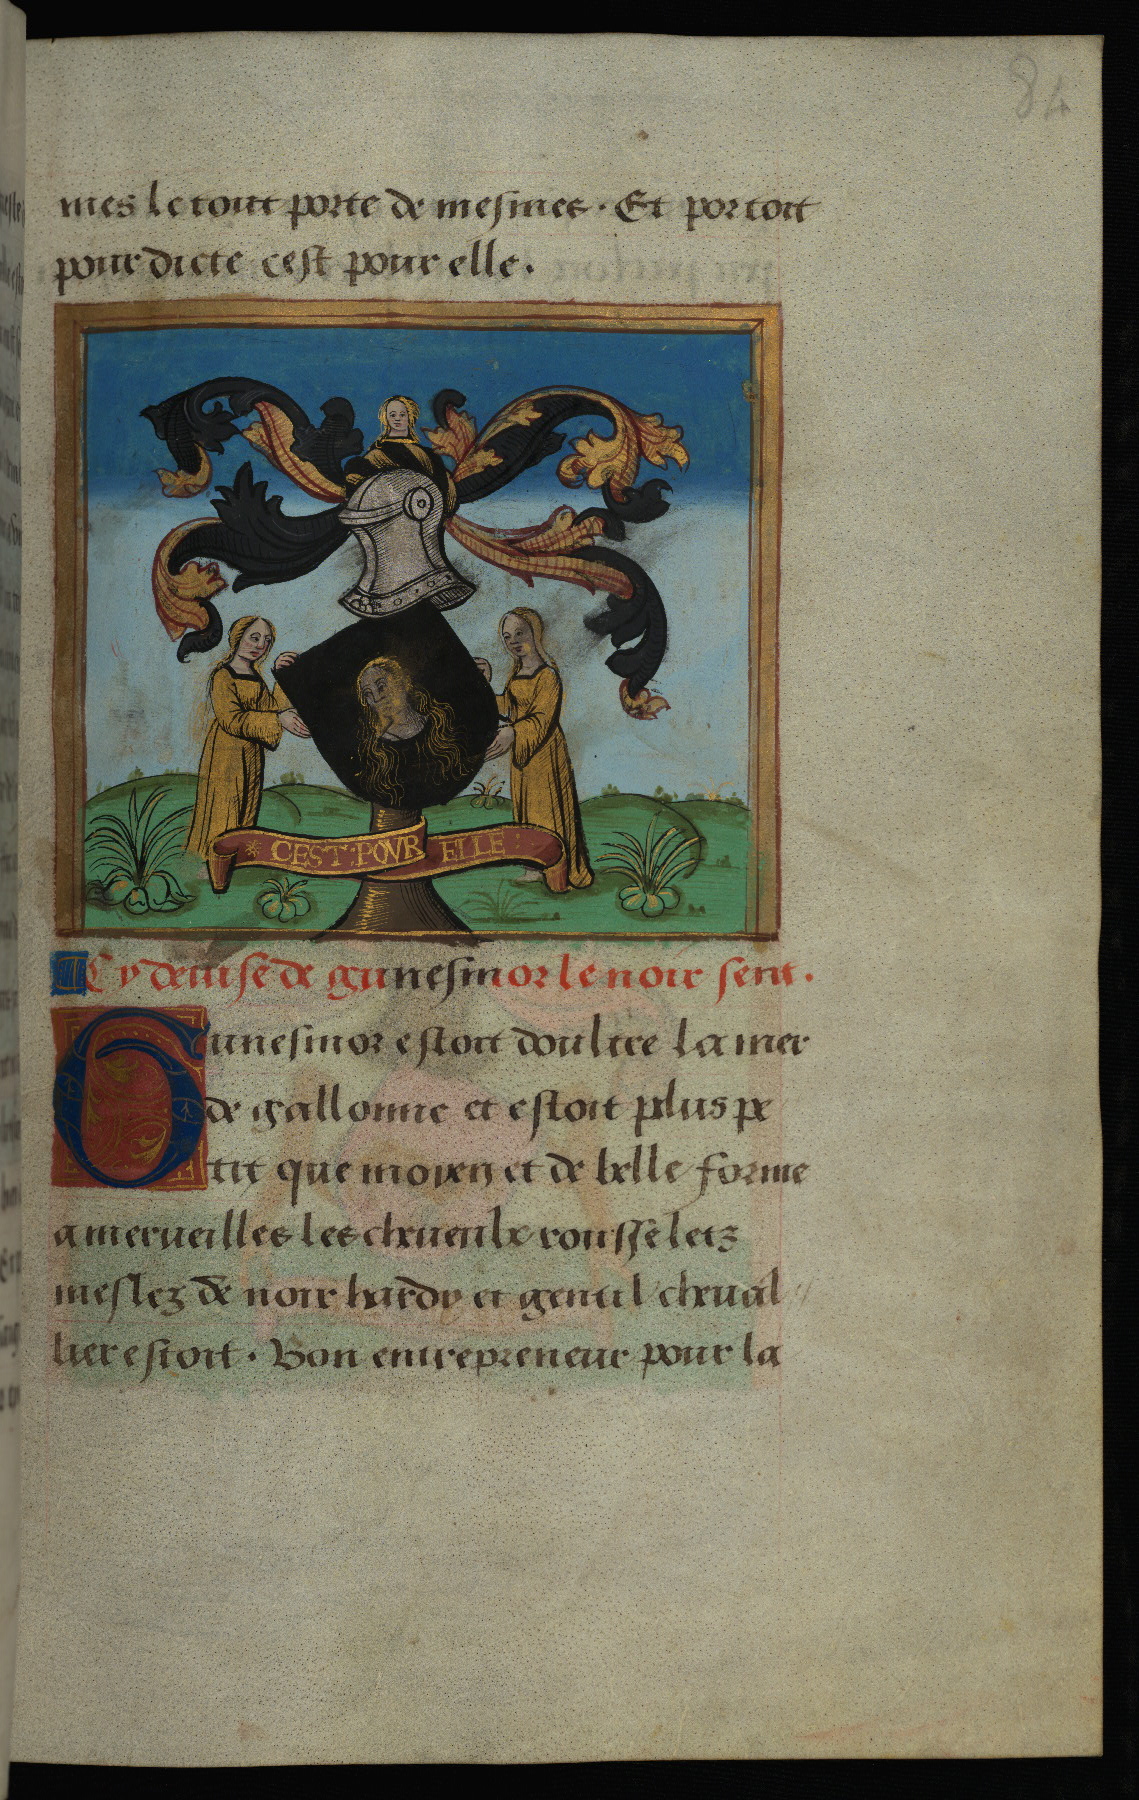 84
mes le tout porte de mesmes · Et portoit
pour dicte cest pour elle ·
* CEST : POVR ELLE :
Cy deuise de gunesmor le noir sent ·
Gunesmor estoit doultre la mer
de gallonne et estoit plus pe
tit que moyen et de belle forme
a merueilles les cheueulx rousseletz
meslez de noir hardy et gentil cheual
lier estoit · Bon entrepreneur pour la